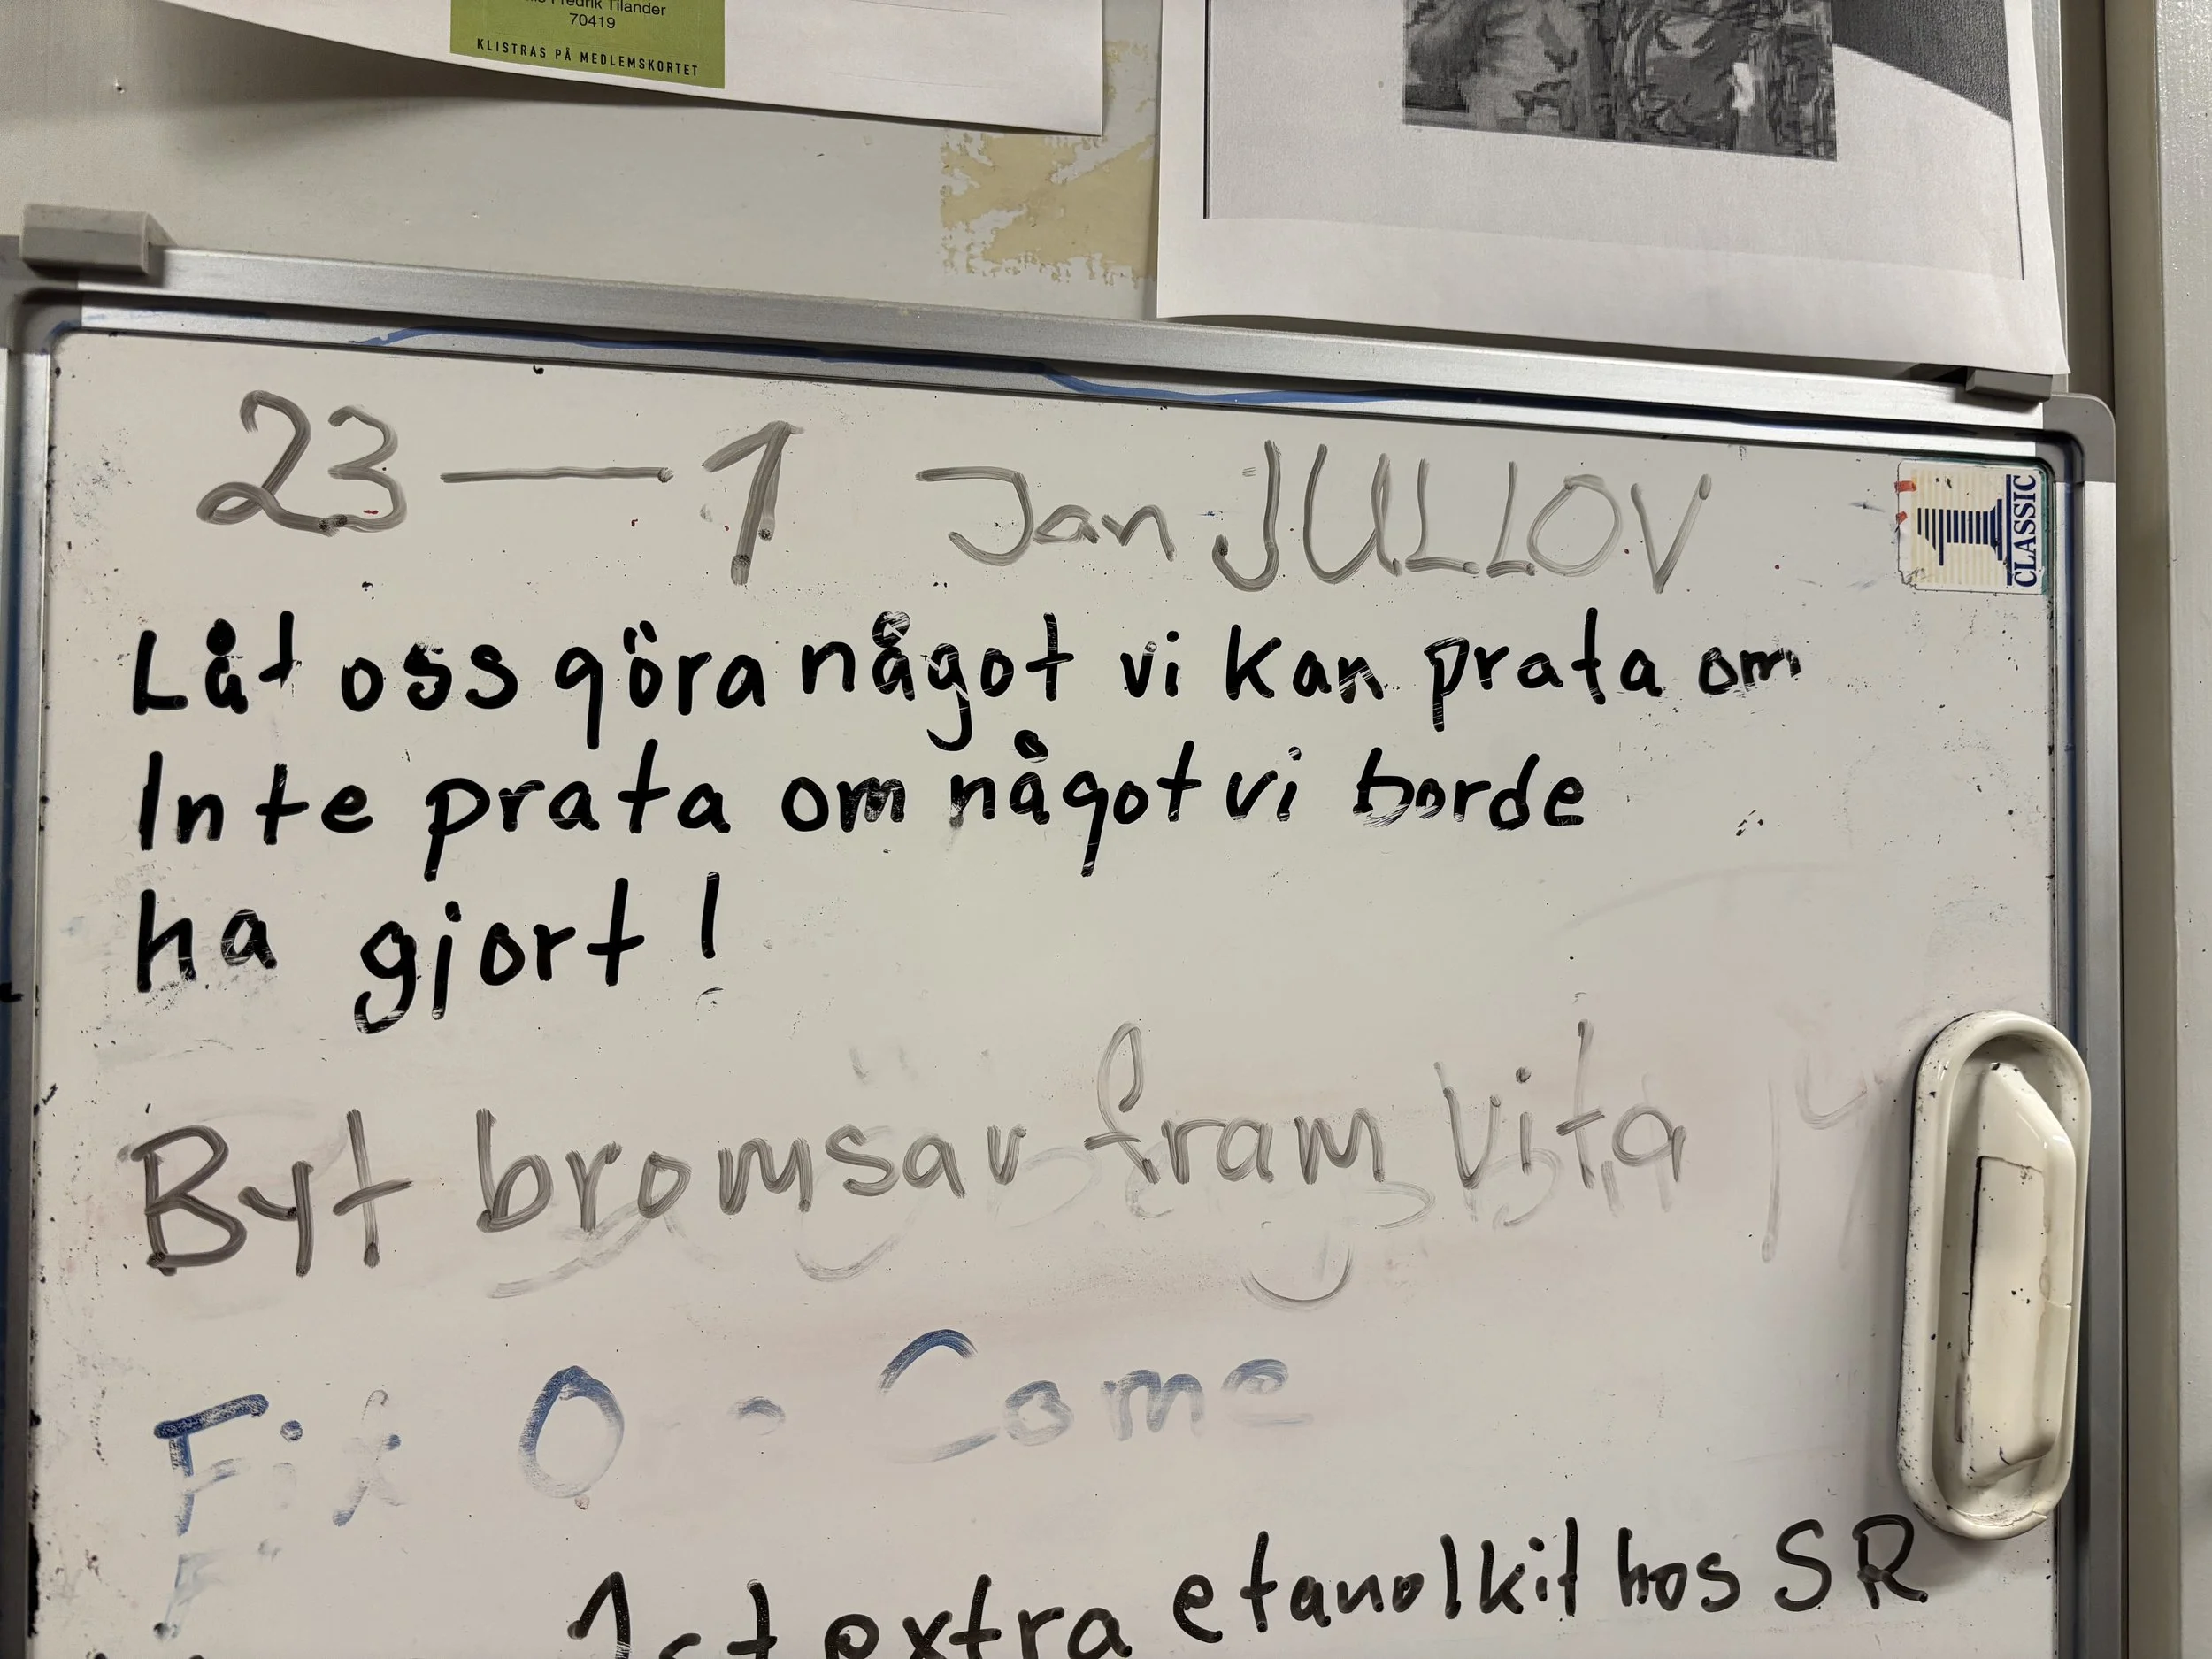 Fredrik Tilander
70419
KLISTRAS PÅ MEDLEMSKORTET
23 — 1 Jan JULLOV
1 CLASSIC
Låt oss göra något vi kan prata om
Inte prata om något vi borde
ha gjort!
Byt bromsar fram vita
Fix O Come
F
1st extra etanolkit hos SR